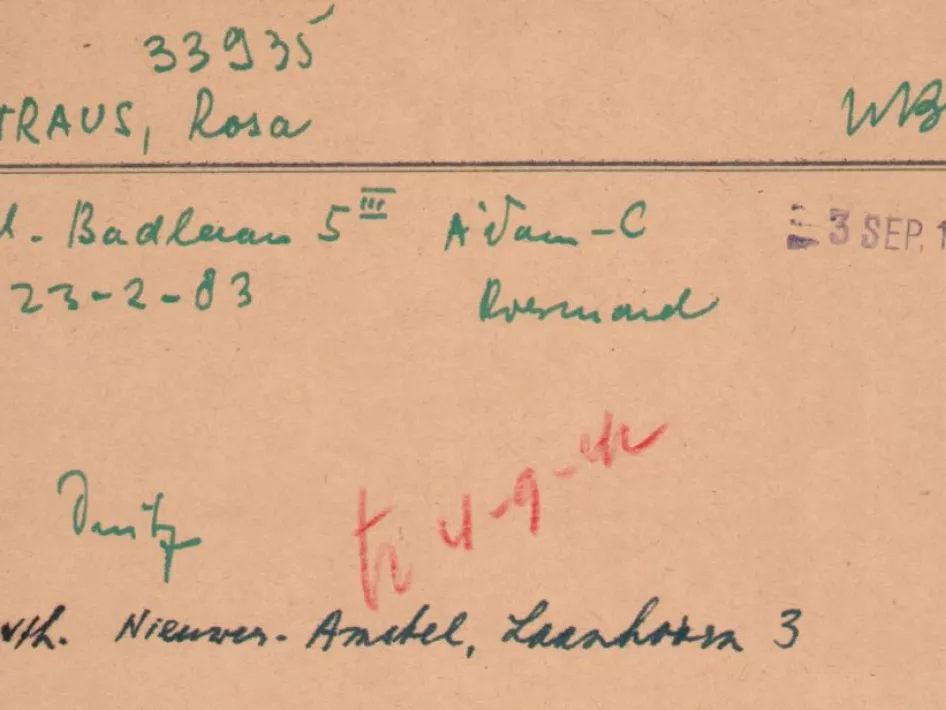 33935
TRAUS, Rosa WB
d. Badlaan 5 III A'dam-C 3 SEP. 1
23-2-83 Roermond
4-9-44
Nieuwer-Amstel, Laanhoorn 3